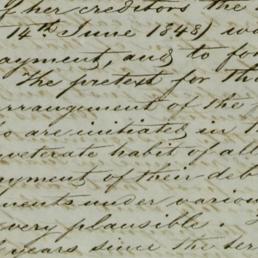 of her creditors the
14th June 1848) wa
ayment, and to for
The pretext for th
arrangement of the
o are initiated in th
veterate habit of all
yment of their deb
ments under variou
very plausible.
years since the ser